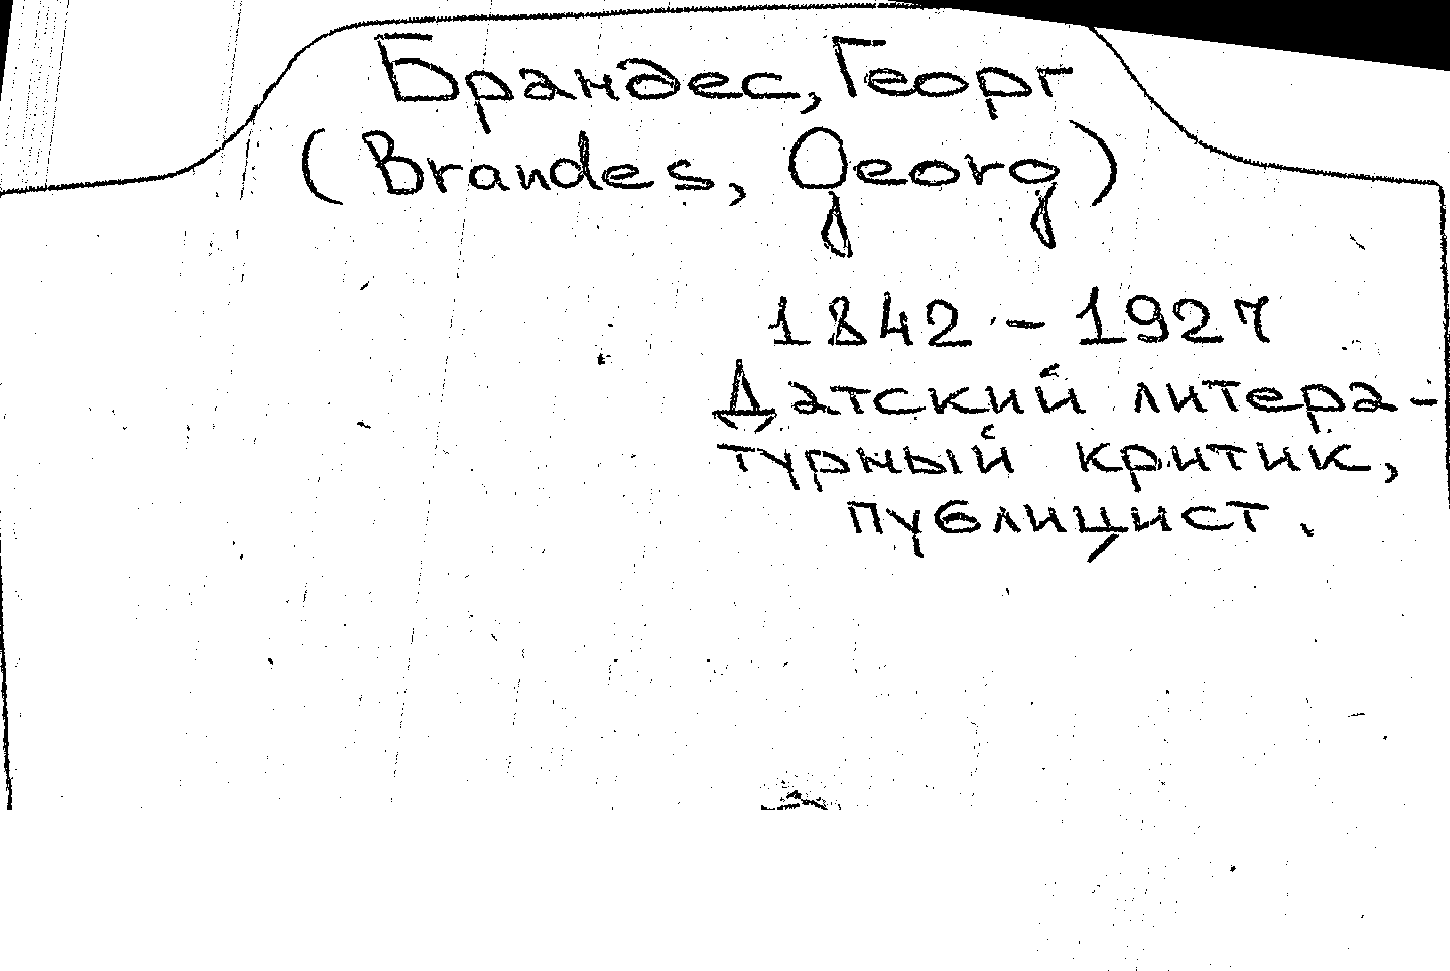 Брандес, Георг
(Brandes, Georg)
1842 - 1927
Датский литера-
турный критик,
публицист.